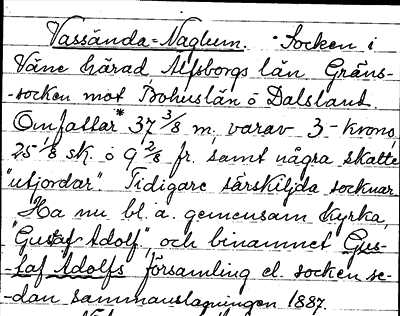 Vassända-Naglum. - Socken i
Väne härad, Älfsborgs län Gräns-
-socken mot Bohuslän o Dalsland.
Omfattar* 37 3/8 m, varav 3 - krono,
25 1/8 sk. o 9 2/8 fr, samt några skatte
"utjordar". Tidigare särskiljda socknar
Ha nu bl. a. gemensam kyrka,
"Gustaf Adolf", och binamnet Gus-
-taf Adolfs församling el. socken se-
-dan sammanslagningen 1887.